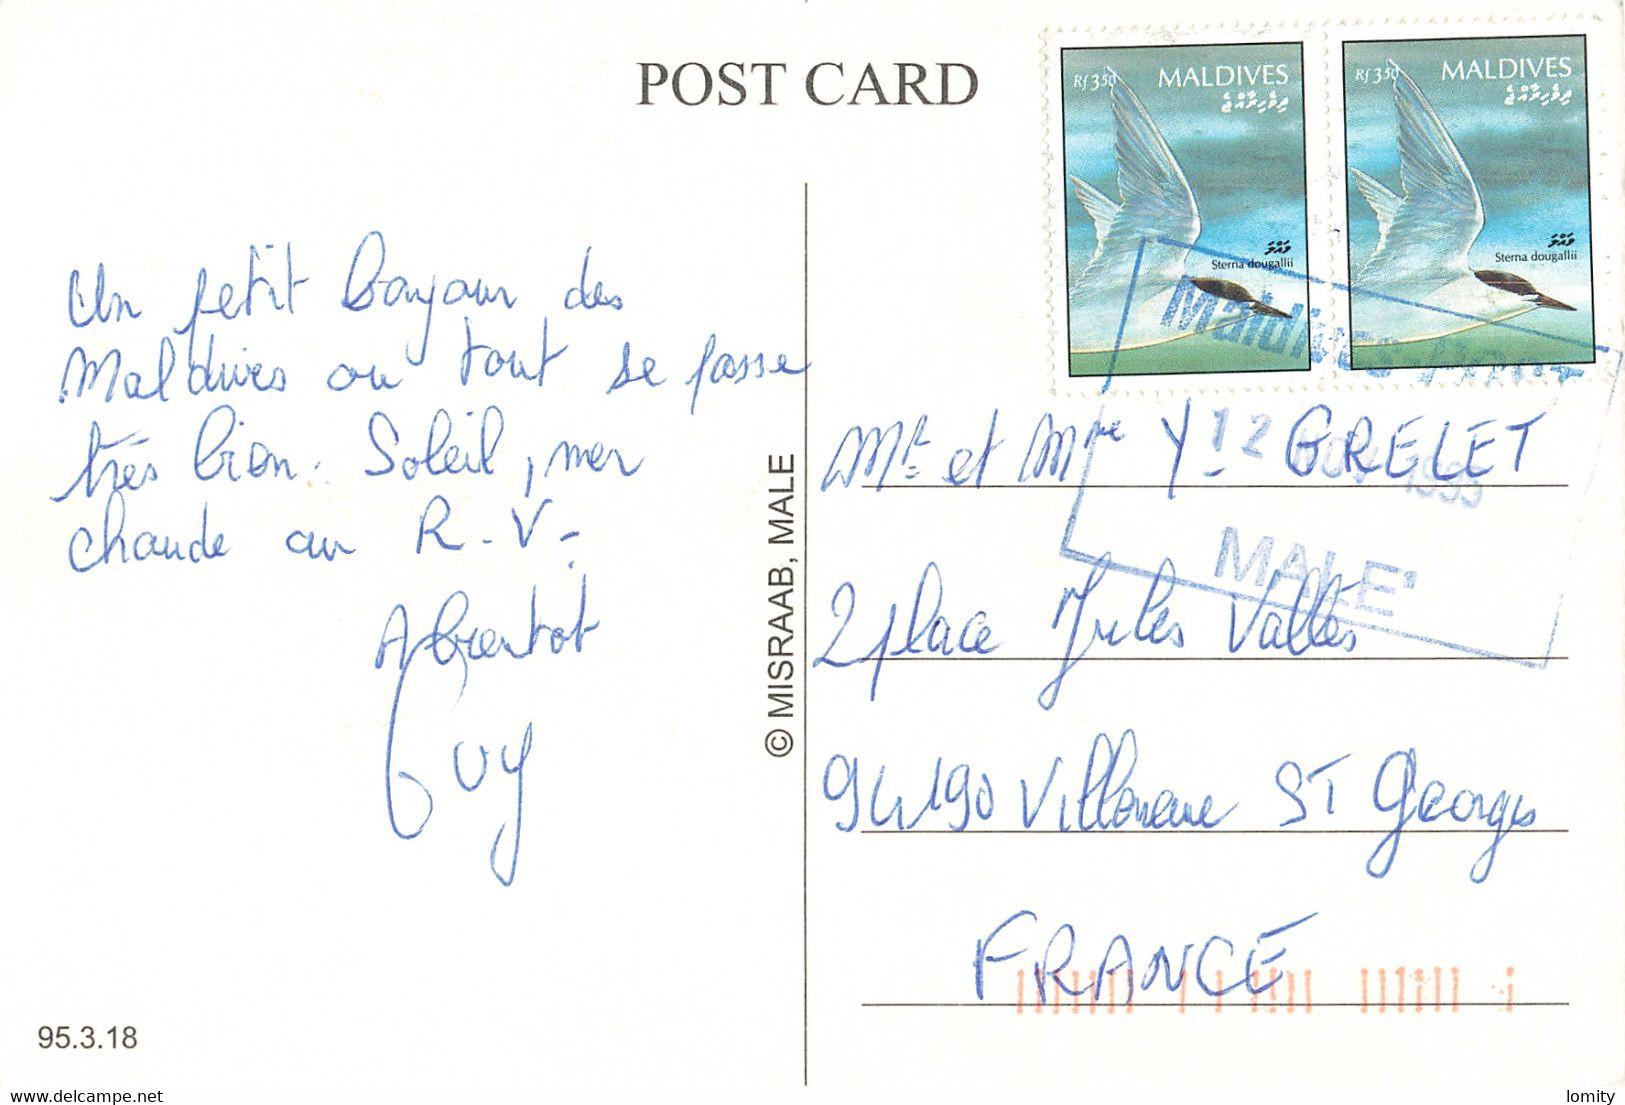 POST CARD
Rf 3.50 MALDIVES
ދިވެހިރާއްޖެ
ވައްލަ
Sterna dougallii
Rf 3.50 MALDIVES
ދިވެހިރާއްޖެ
ވައްލަ
Sterna dougallii
Maldives
12 NOV 1995
MALE'
Un petit bonjour des
Maldives ou tout se passe
très bien. Soleil, mer
chaude au R.V.
A bientot
Guy
© MISRAAB, MALE
Mr et Mme Y. GRELET
2 place Jules Vallès
94190 Villeneuve ST Georges
FRANCE
95.3.18
www.delcampe.net
lomity